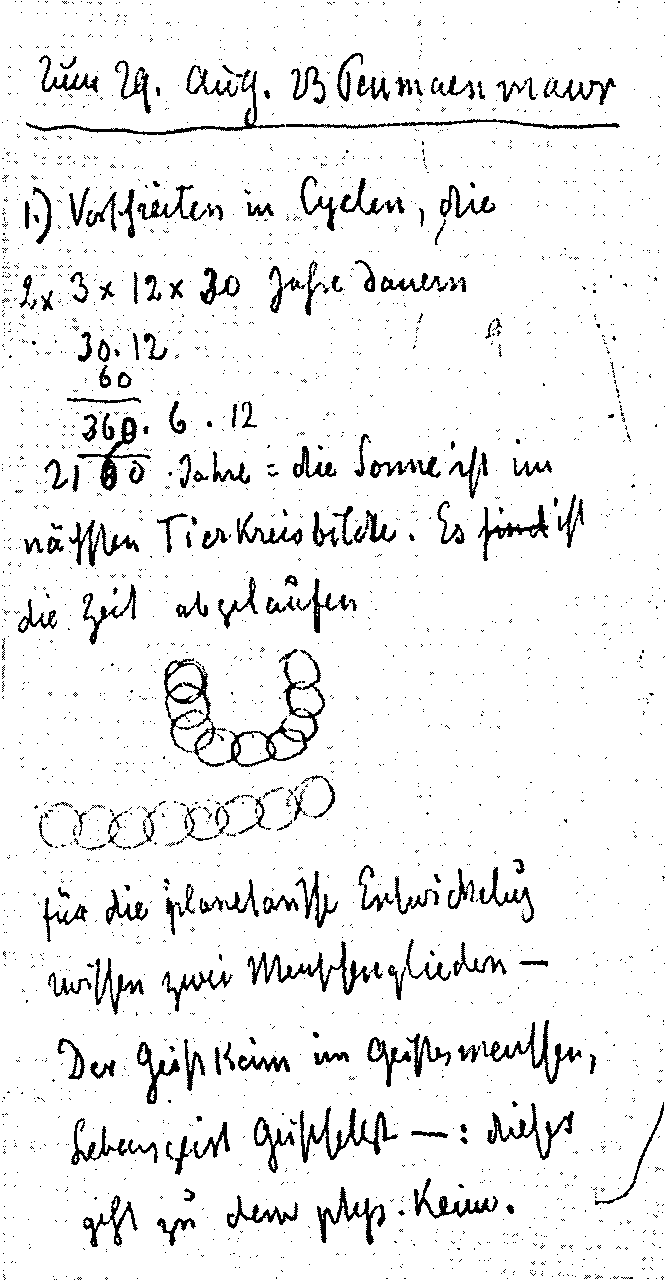 Zum 29. Aug. 23 Penmaenmawr
1.) Vorschreiten in Cyclen, die
2 x 3 x 12 x 30 Jahre dauern
30. 12
60
360. 6 . 12
2160 Jahre = die Sonne ist im
nächsten Tierkreisbilde. Es sind ist
die Zeit abgelaufen
für die planetarische Entwickelung
zwischen zwei Menschengliedern —
Der Geistkeim im Geistesmenschen,
Lebensgeist Geistselbst — : dieses
geht zu dem phys. Keim.